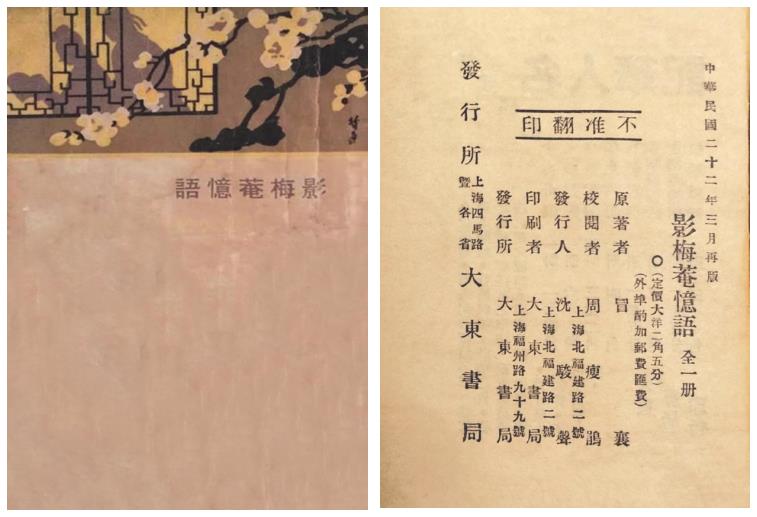 影梅菴憶語
中華民國二十二年三月再版
影梅菴憶語 全一册
○(定價大洋二角五分)
(外埠酌加郵費匯費)
不准翻印
原著者 冒襄
校閱者 周瘦鵑
上海北福建路二號
發行人 沈駿聲
上海北福建路二號
印刷者 大東書局
上海福州路九十九號
發行所 大東書局
發行所 上海四馬路暨各省 大東書局